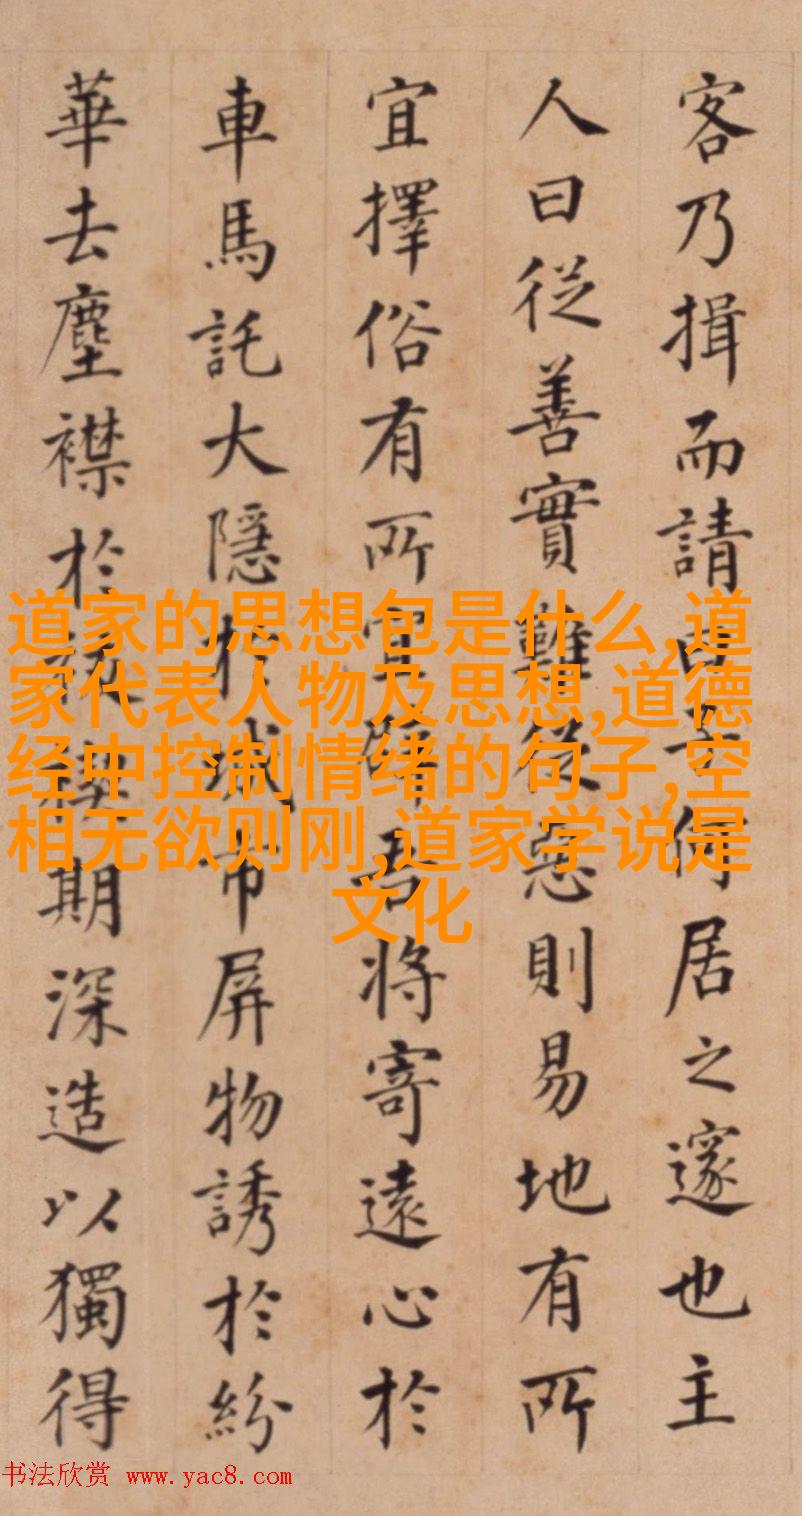 客乃揖而請曰子何居之邃也主
人曰從善實難從惡則易地有所
宜擇俗有所宜吾將寄遠心於
車馬託大隱於城市屏物誘於紛
華去塵襟於期深造以獨得
道家的思想包是什么,道
家代表人物及思想,道德
经中控制情绪的句子,空
相无欲则刚,道家学说是
文化
书法欣赏 www.yac8.com